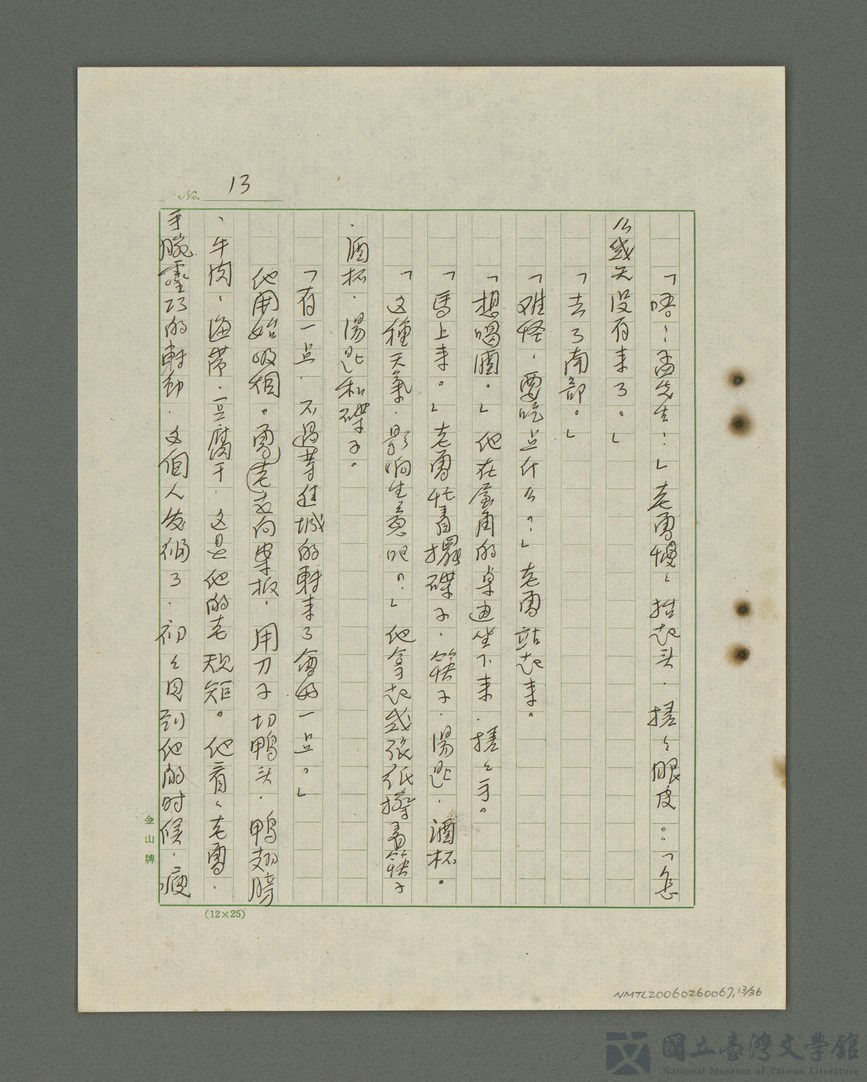 No. 13
「唔！孟先生！」老曹慢々抬起头，搓々眼皮。「怎
么幾天沒有来了。」
「去了南部。」
「难怪，要吃点什么？」老曹站起来。
「想喝酒。」他在屋角的桌边坐下来，搓々手。
「馬上来。」老曹忙着擺碟子，筷子，湯匙，酒杯。
「这種天氣，影响生意吧？」他拿起幾張紙擦着筷子
，酒杯，湯匙和碟子。
「有一点，不過等进城的車来了會好一点。」
他開始吸烟。曹老走向菜板，用刀子切鴨头，鴨翅膀
，牛肉，海带，豆腐干，这是他的老规矩。他看々老曹，
手腕靈巧的転動，这個人发福了，初々回到他的时候，瘦
金山牌
(12×25)
NMTL20060260067,13/36
國立臺灣文學館
National Museum of Taiwan Literature